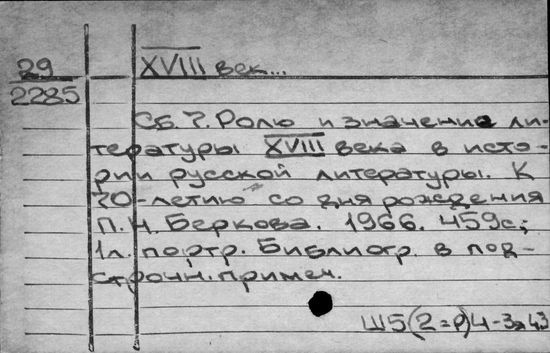 29
2285
XVIII век...
Сб. 7. Ролю и значение ли-
тературы XVIII века в исто-
рии русской литературы. К
70-летию со дня рождения
П. Н. Беркова. 1966. 459с;
1л. портр. Библиогр. в под-
строчн. примеч.
Ш5(2=Р)4-3я43